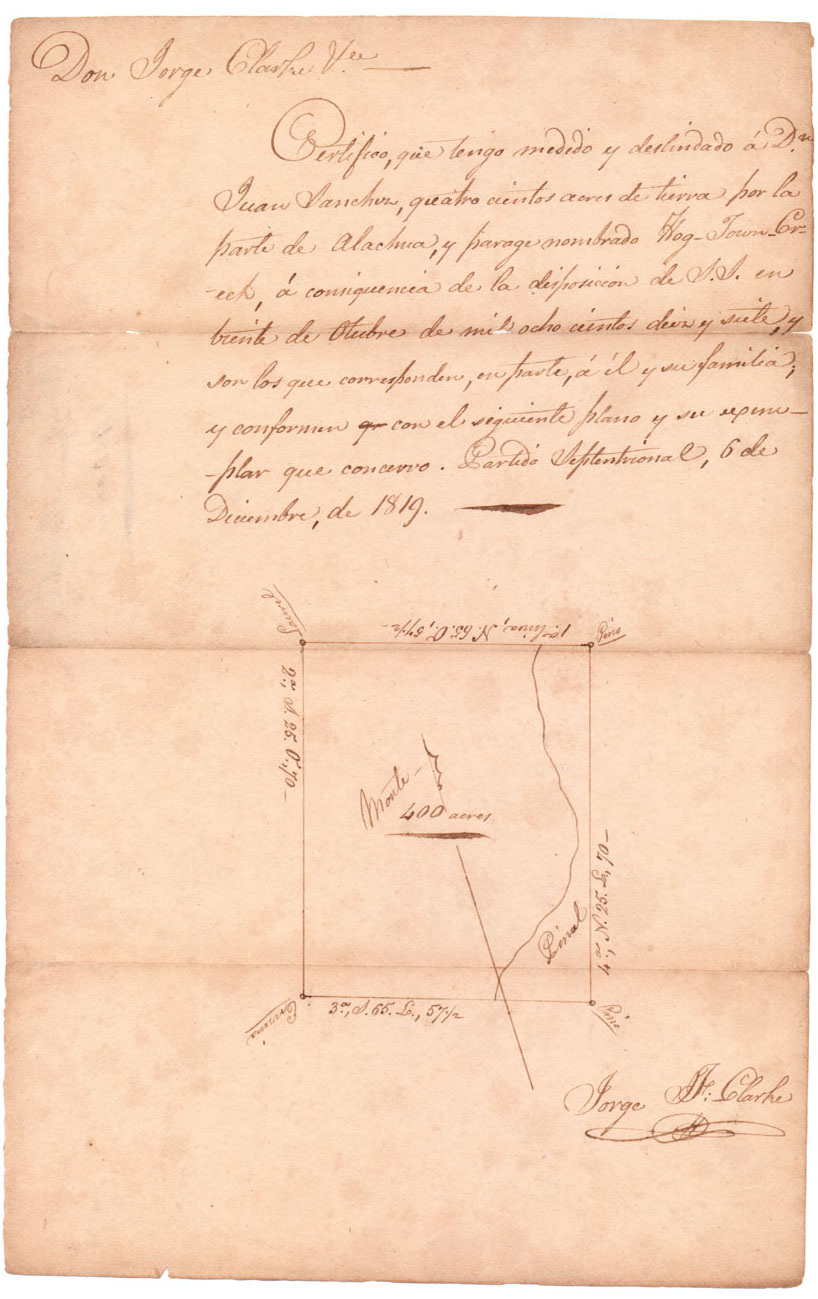 Don Jorge Clarke V.ee
Certifico, que tengo medido y deslindado á D.n
Juan Sanchez, quatro cientos acres de tierra por la
parte de Alachua, y parage nombrado Hog-Town-Cr-
-eek, á consiguencia de la disposición de S.S. en
trente de Otubre de mil ocho cientos deiz y siete, y
son los que corresponden, en parte, á él y su familia;
y conformen con el siguiente plano y su exem-
-plar que concervo. Partido Septentrional, 6 de
Diciembre, de 1819.
Laurel
1.a linea, N. 65. O., 57 1/2
Pino
2.a, S. 25. O., 70
Monte
400 acres
4.a, N. 25. E., 70
Pinal
3.a, S. 65. E., 57 1/2
Encina
Pino
Jorge J. F: Clarke